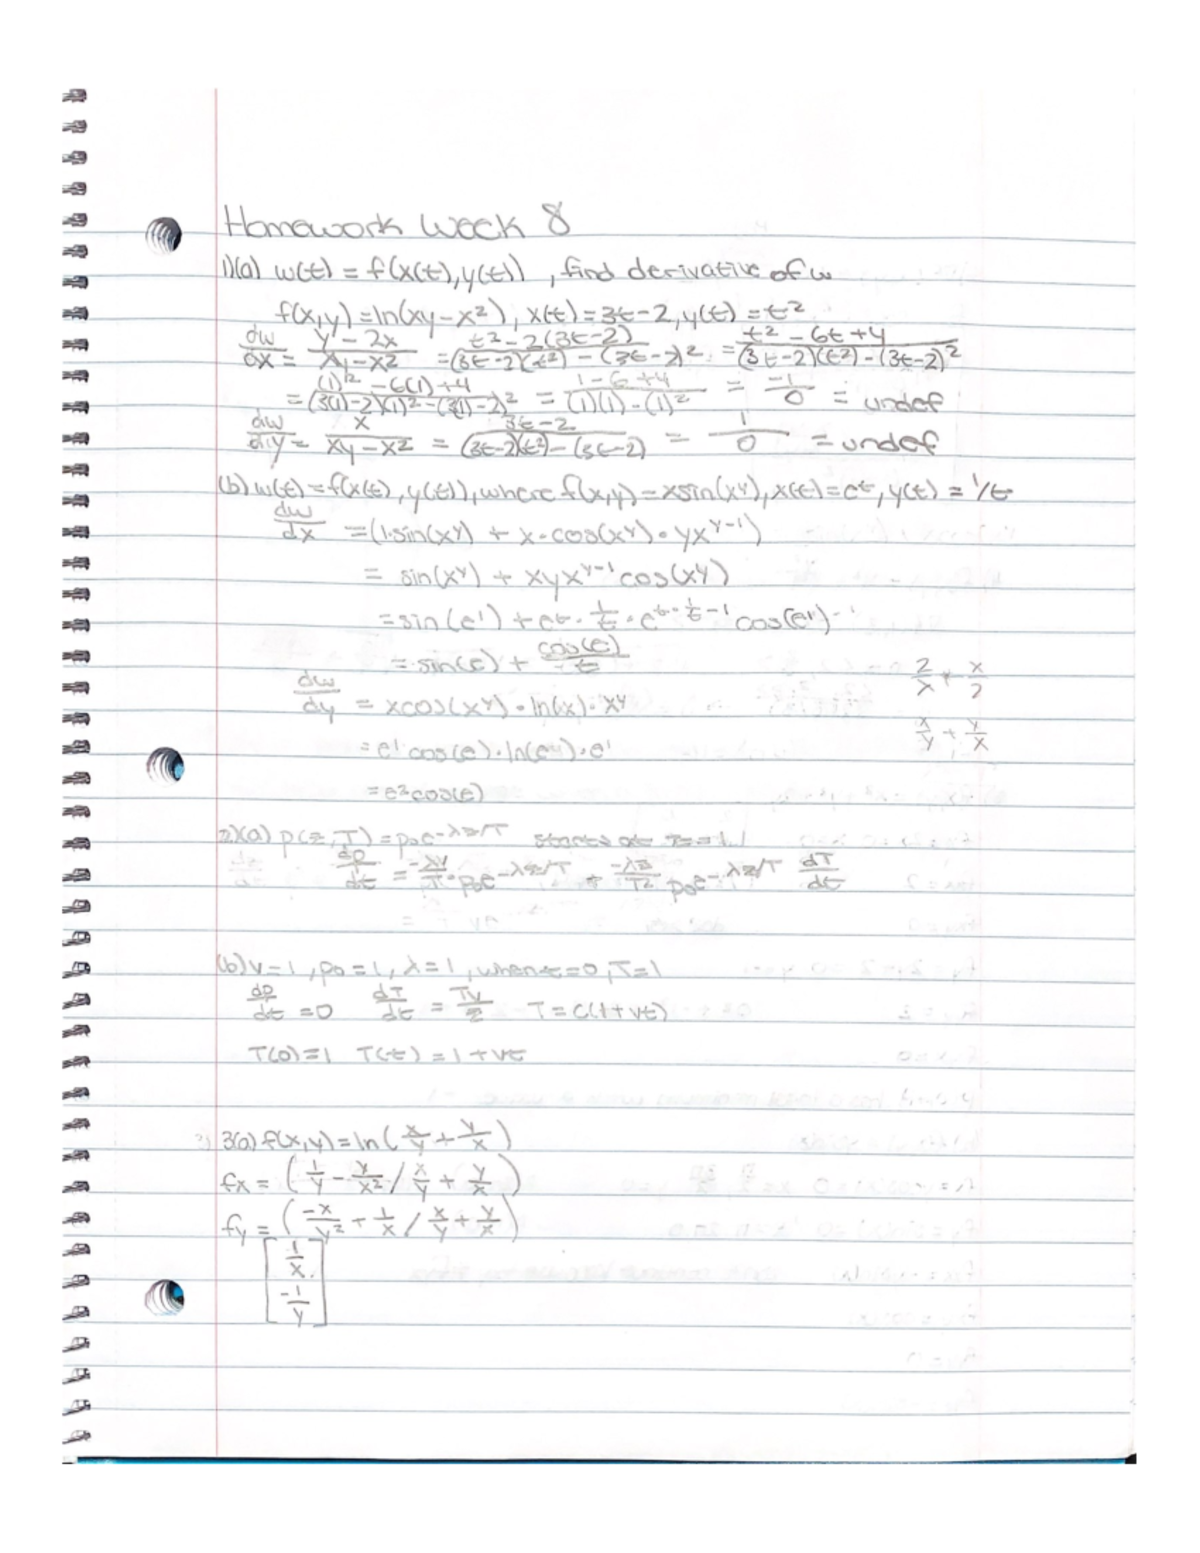 Homework Week 8
1)(a) w(t) = f(x(t), y(t)) , find derivative of w
f(x,y) = ln(xy - x²), x(t) = 3t - 2, y(t) = t²
dw/dx = y - 2x / xy - x² = t² - 2(3t - 2) / (3t-2)(t²) - (3t-2)² = t² - 6t + 4 / (3t-2)(t²) - (3t-2)²
= (1)² - 6(1) + 4 / (3(1)-2)(1)² - (3(1)-2)² = 1 - 6 + 4 / (1)(1) - (1)² = -1/0 = undef
dw/dy = x / xy - x² = 3t - 2 / (3t-2)(t²) - (3t-2) = 1/0 = undef
(b) w(t) = f(x(t), y(t)), where f(x,y) = xsin(x^y), x(t) = e^t, y(t) = 1/t
dw/dx = (1·sin(x^y) + x·cos(x^y)·yx^(y-1))
= sin(x^y) + xyx^(y-1) cos(x^y)
= sin(e¹) + e^t · 1/t · e^(t·1/t-1) cos(e¹)
= sin(e) + cos(e)/t
2/x + x/2
dw/dy = xcos(x^y) · ln(x) · x^y
x/y + y/x
= e¹ cos(e) · ln(e¹) · e¹
= e² cos(e)
2)(a) p(z,T) = p₀e^(-λz/T) starts at z = 1
dp/dt = -λv/T · p₀e^(-λz/T) + -λz/T² p₀e^(-λz/T) dT/dt
(b) v = 1, p₀ = 1, λ = 1, when t = 0, T = 1
dp/dt = 0 dT/dt = Tv/z T = C(1 + vt)
T(0) = 1 T(t) = 1 + vt
3(a) f(x,y) = ln(x/y + y/x)
fx = (1/y - y/x² / x/y + y/x)
fy = (-x/y² + 1/x / x/y + y/x)
[1/x
-1/y]